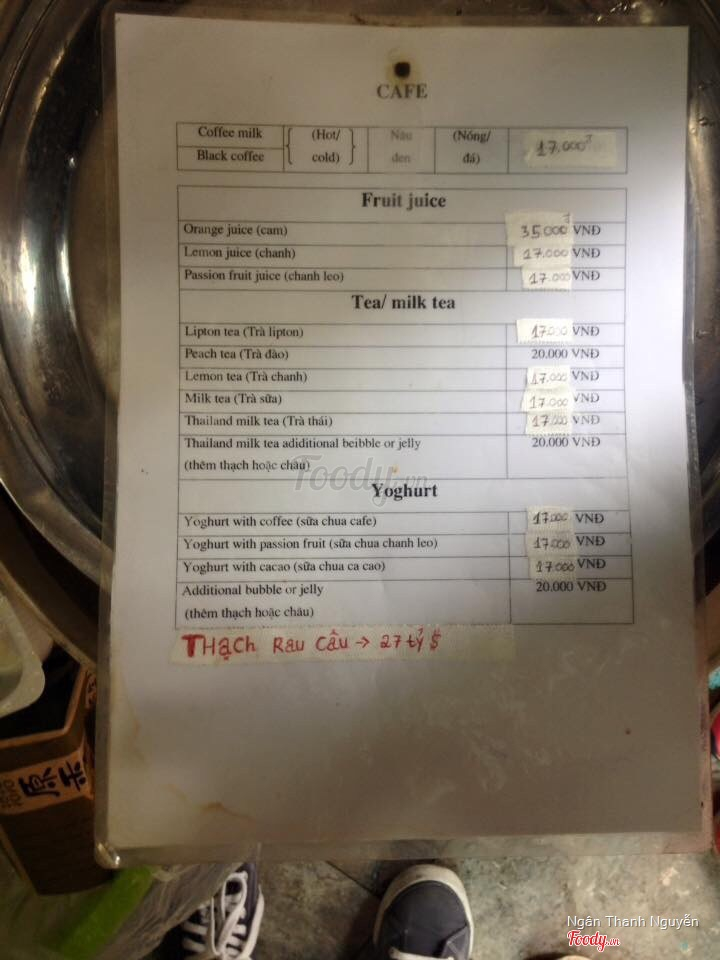 CAFE
Coffee milk (Hot/ Nâu (Nóng/ 17.000đ
Black coffee cold) đen đá)
Fruit juice
Orange juice (cam) 35.000đ VNĐ
Lemon juice (chanh) 17.000 VNĐ
Passion fruit juice (chanh leo) 17.000 VNĐ
Tea/ milk tea
Lipton tea (Trà lipton) 17.000 VNĐ
Peach tea (Trà đào) 20.000 VNĐ
Lemon tea (Trà chanh) 17.000 VNĐ
Milk tea (Trà sữa) 17.000 VNĐ
Thailand milk tea (Trà thái) 17.000 VNĐ
Thailand milk tea adiditional beibble or jelly 20.000 VNĐ
(thêm thạch hoặc châu)
Foody.vn
Yoghurt
Yoghurt with coffee (sữa chua cafe) 17.000 VNĐ
Yoghurt with passion fruit (sữa chua chanh leo) 17.000 VNĐ
Yoghurt with cacao (sữa chua ca cao) 17.000 VNĐ
Additional bubble or jelly 20.000 VNĐ
(thêm thạch hoặc châu)
THạch Rau Câu → 27 tỷ $
Ngân Thanh Nguyễn
Foody.vn